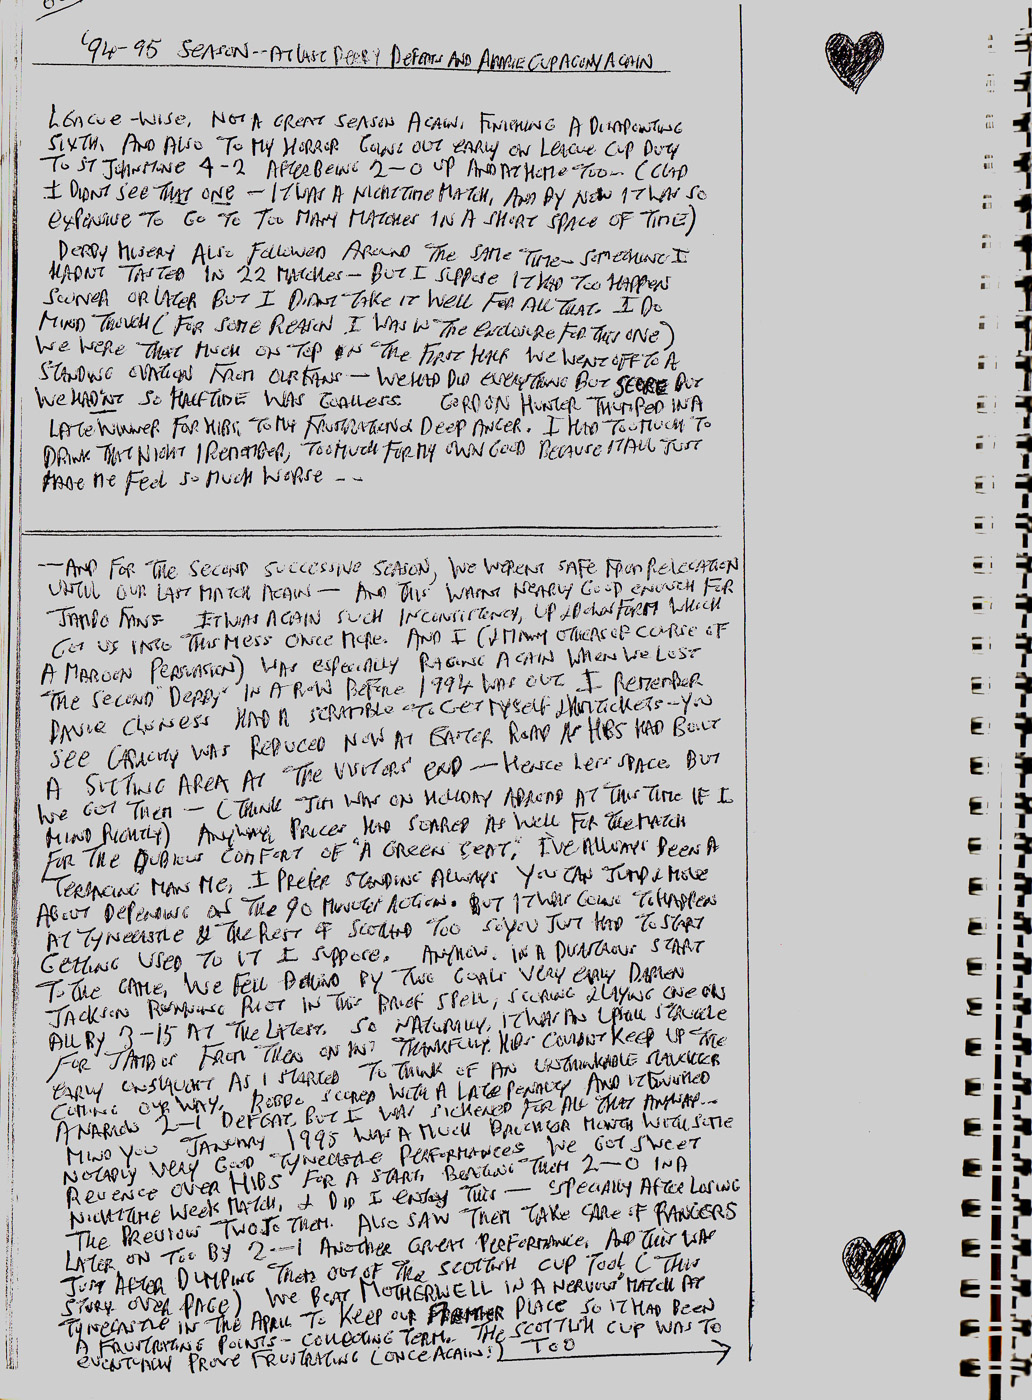 '94-95 SEASON -- AT LAST DERBY DEFEATS AND AIRDRIE CUP AGONY AGAIN
LEAGUE-WISE, NOT A GREAT SEASON AGAIN, FINISHING A DISAPPOINTING
SIXTH, AND ALSO TO MY HORROR GOING OUT EARLY ON LEAGUE CUP DUTY
TO ST JOHNSTONE 4-2 AFTER BEING 2-0 UP AND AT HOME TOO -- (GLAD
I DIDNT SEE THAT ONE - IT WAS A NIGHTTIME MATCH, AND BY NOW IT WAS SO
EXPENSIVE TO GO TO TOO MANY MATCHES IN A SHORT SPACE OF TIME)
DERBY MISERY ALSO FOLLOWED AROUND THE SAME TIME - SOMETHING I
HADNT TASTED IN 22 MATCHES - BUT I SUPPOSE IT HAD TO HAPPEN
SOONER OR LATER BUT I DIDNT TAKE IT WELL FOR ALL THAT. I DO
MIND THOUGH (FOR SOME REASON I WAS IN THE ENCLOSURE FOR THIS ONE)
WE WERE THAT MUCH ON TOP IN THE FIRST HALF WE WENT OFF TO A
STANDING OVATION FROM OUR FANS - WE HAD DID EVERYTHING BUT SCORE BUT
WE HADN'T SO HALFTIME WAS GOALLESS GORDON HUNTER THUMPED IN A
LATE WINNER FOR HIBS, TO MY FRUSTRATION & DEEP ANGER. I HAD TOO MUCH TO
DRINK THAT NIGHT I REMEMBER, TOO MUCH FOR MY OWN GOOD BECAUSE IT ALL JUST
MADE ME FEEL SO MUCH WORSE --
- AND FOR THE SECOND SUCCESSIVE SEASON, WE WERENT SAFE FROM RELEGATION
UNTIL OUR LAST MATCH AGAIN - AND THIS WASNT NEARLY GOOD ENOUGH FOR
JAMBO FANS IT WAS AGAIN SUCH INCONSISTENCY, UP & DOWN FORM WHICH
GOT US INTO THIS MESS ONCE MORE. AND I (& MANY OTHERS OF COURSE OF
A MAROON PERSUASION) WAS ESPECIALLY RAGING AGAIN WHEN WE LOST
THE SECOND "DERBY" IN A ROW BEFORE 1994 WAS OUT. I REMEMBER
DAVIE HAD A SCRAMBLE TO GET MYSELF & HIM TICKETS - YOU
SEE CAPACITY WAS REDUCED NOW AT EASTER ROAD AS HIBS HAD BUILT
A SITTING AREA AT THE VISITORS' END - HENCE LESS SPACE. BUT
WE GOT THEM - (THINK JIM WAS ON HOLIDAY ABROAD AT THIS TIME IF I
MIND RIGHTLY) ANYWAY, PRICES HAD SOARED AS WELL FOR THE MATCH
FOR THE DUBIOUS COMFORT OF "A GREEN SEAT," I'VE ALWAYS BEEN A
TERRACING MAN ME, I PREFER STANDING ALWAYS YOU CAN JUMP & MOVE
ABOUT DEPENDING ON THE 90 MINUTES ACTION. BUT IT WAS GOING TO HAPPEN
AT TYNECASTLE & THE REST OF SCOTLAND TOO SO YOU JUST HAD TO START
GETTING USED TO IT I SUPPOSE. ANYHOW, IN A DISASTROUS START
TO THE GAME, WE FELL BEHIND BY TWO GOALS VERY EARLY DARREN
JACKSON RUNNING RIOT IN THIS BRIEF SPELL, SCORING & LAYING ONE ON
ALL BY 3-15 AT THE LATEST. SO NATURALLY, IT WAS AN UPHILL STRUGGLE
FOR JAMBOS FROM THEN ON BUT THANKFULLY HIBS COULDNT KEEP UP THE
EARLY ONSLAUGHT AS I STARTED TO THINK OF AN UNTHINKABLE SLAUGHTER
COMING OUR WAY. ROBBO SCORED WITH A LATE PENALTY AND IT FINISHED
A NARROW 2-1 DEFEAT, BUT I WAS SICKENED FOR ALL THAT ANYWAY --
MIND YOU JANUARY 1995 WAS A MUCH BRIGHTER MONTH WITH SOME
NOTABLY VERY GOOD TYNECASTLE PERFORMANCES WE GOT SWEET
REVENGE OVER HIBS FOR A START, BEATING THEM 2-0 IN A
NIGHTTIME WEEK MATCH, & DID I ENJOY THIS - SPECIALLY AFTER LOSING
THE PREVIOUS TWO TO THEM. ALSO SAW THEM TAKE CARE OF RANGERS
LATER ON TOO BY 2--1 ANOTHER GREAT PERFORMANCE, AND THIS WAS
JUST AFTER DUMPING THEM OUT OF THE SCOTTISH CUP TOO! (THIS
STORY OVER PAGE) WE BEAT MOTHERWELL IN A NERVOUS MATCH AT
TYNECASTLE IN THE APRIL TO KEEP OUR PREMIER PLACE SO IT HAD BEEN
A FRUSTRATING POINTS-COLLECTING TERM. THE SCOTTISH CUP WAS TO
EVENTUALLY PROVE FRUSTRATING (ONCE AGAIN!) TOO